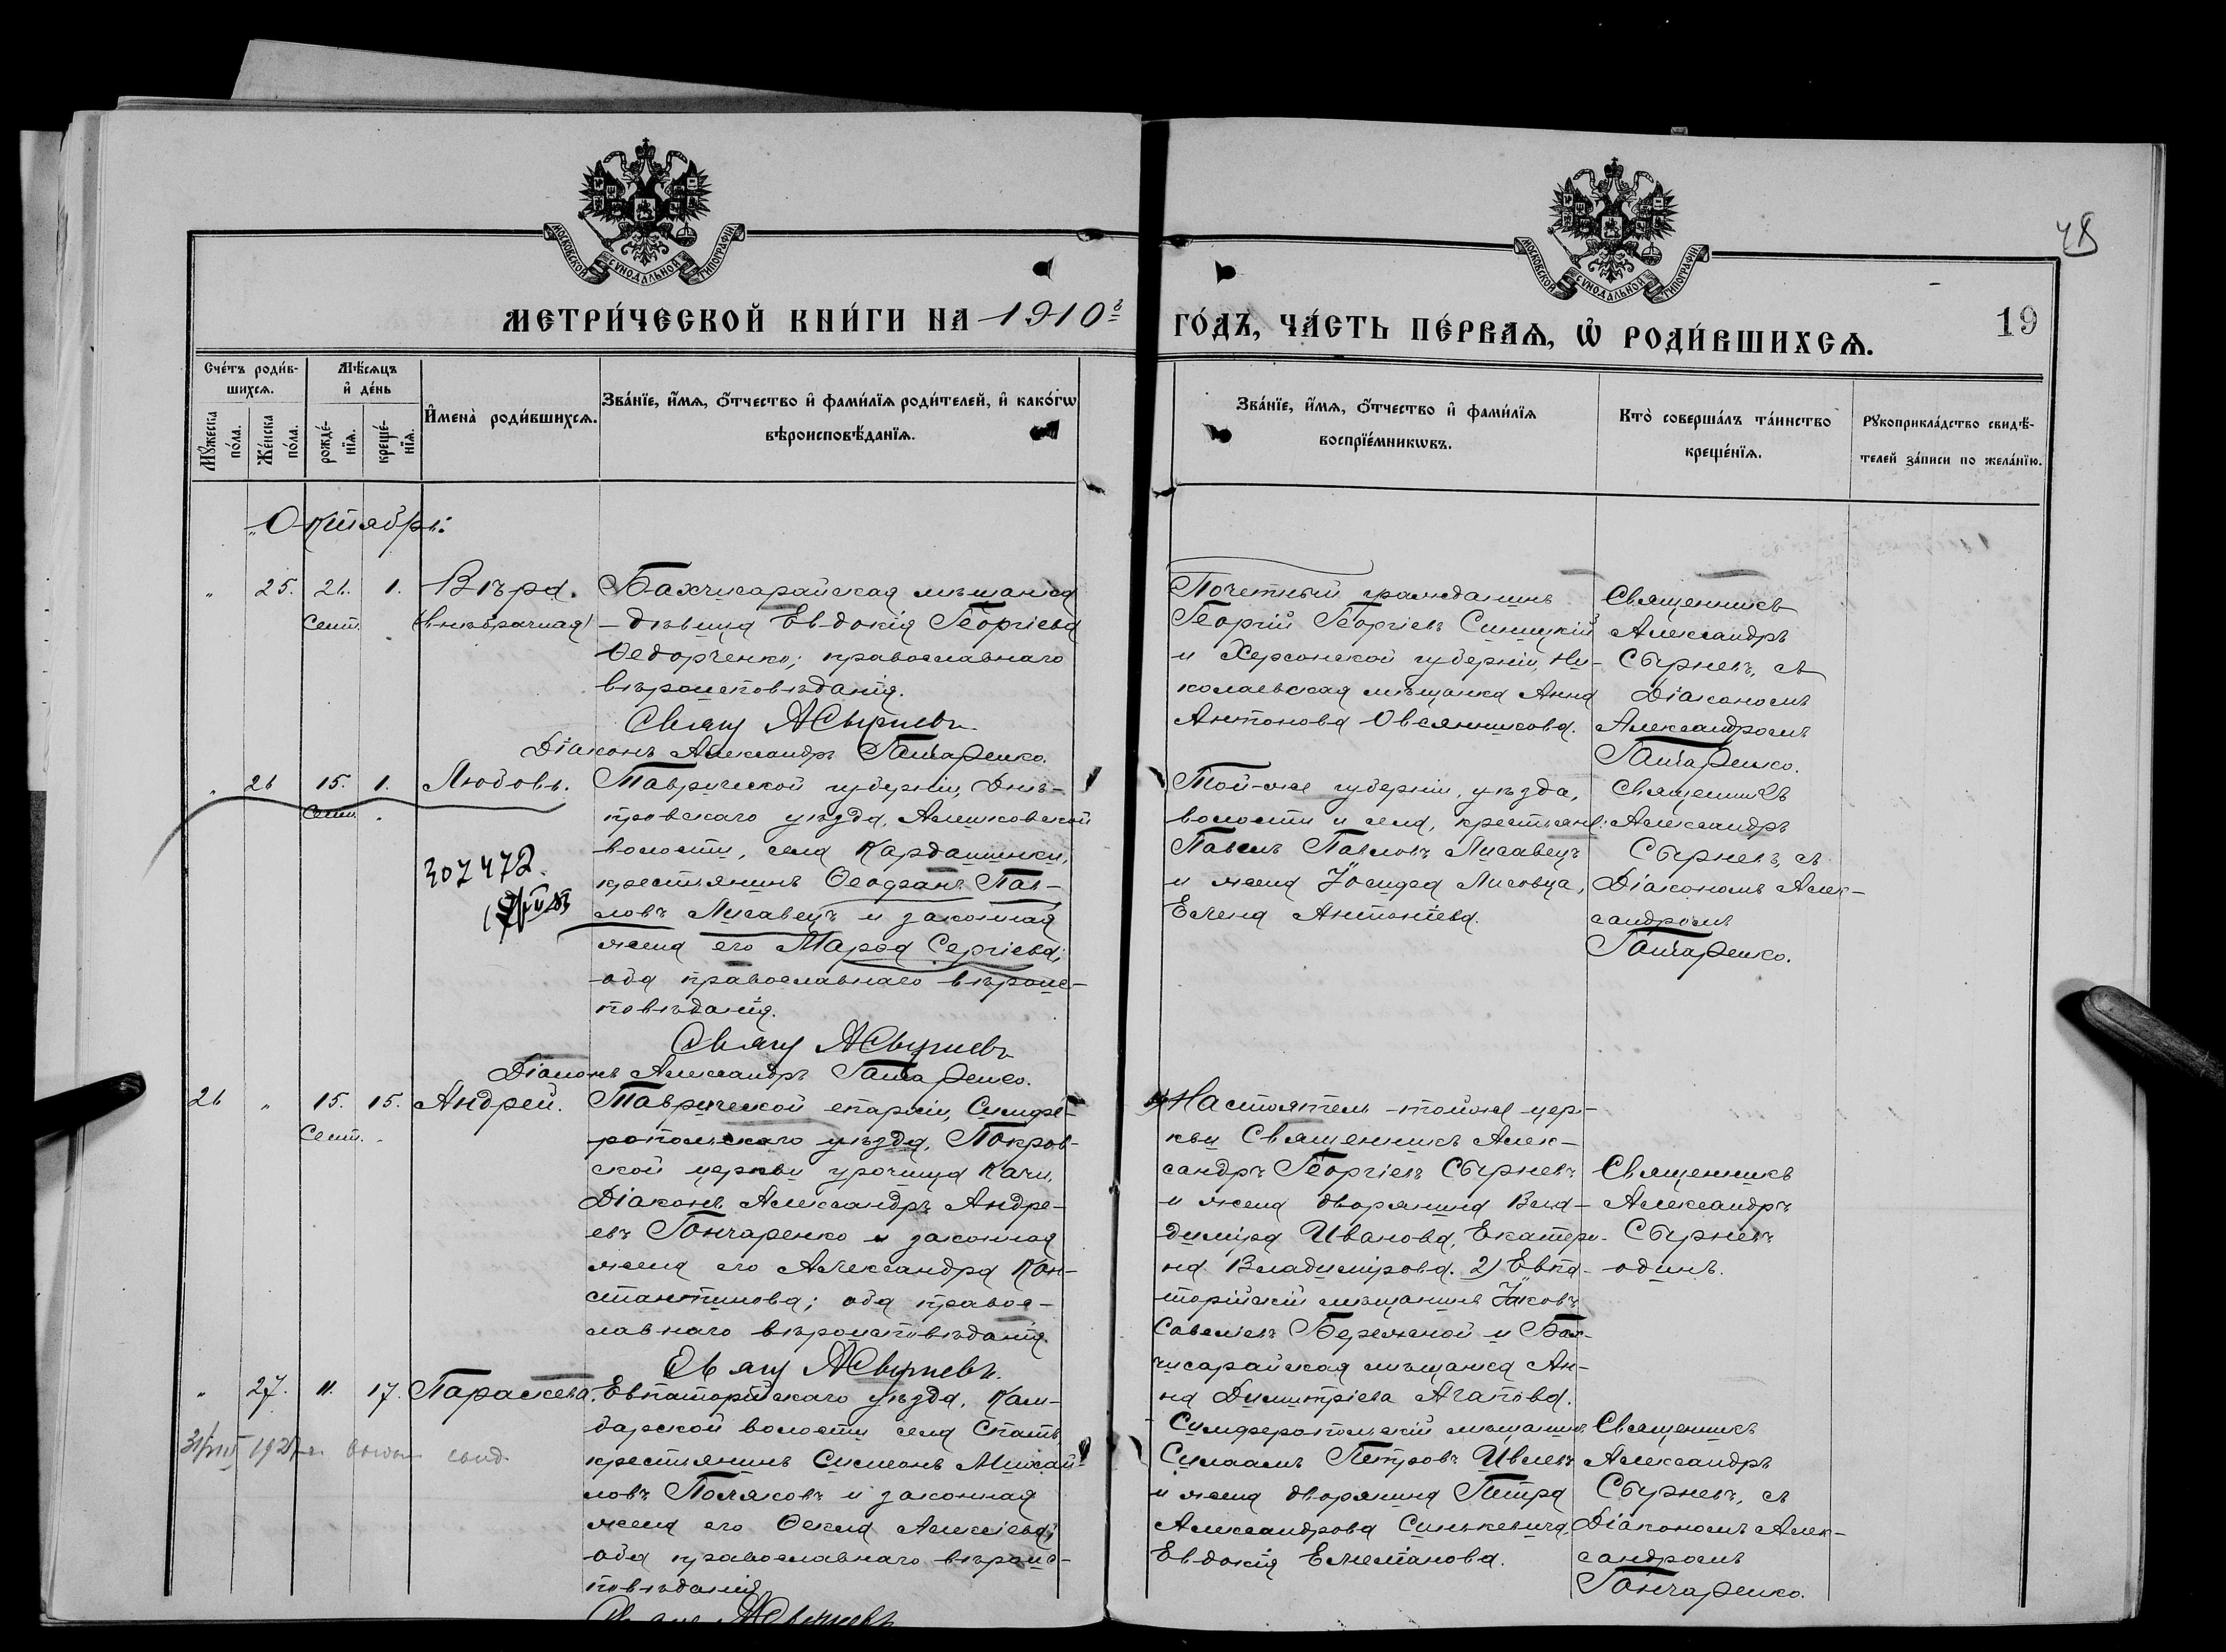 МОСКОВСКОЙ СѴНОДАЛЬНОЙ ТИПОГРАФІИ
МОСКОВСКОЙ СѴНОДАЛЬНОЙ ТИПОГРАФІИ
48
МЕТРИ́ЧЕСКОЙ КНИ́ГИ НА 1910 г
ГО́ДЪ, ЧА́СТЬ ПЕ́РВАѦ, Ѡ҆ РОДИ́ВШИХСѦ.
19
Сче́тъ роди́в-
шихсѧ.
Мꙋ́жеска по́ла.
Же́нска по́ла.
Мѣ́сѧцъ
и҆ де́нь
рожде́-
нїѧ.
креще́-
нїѧ.
И҆мена̀ роди́вшихсѧ.
Зва́нїе, и҆́мѧ, ѻ҆́тчество и҆ фами́лїѧ роди́телей, и҆ како́гѡ
вѣроисповѣ́данїѧ.
Зва́нїе, и҆́мѧ, ѻ҆́тчество и҆ фами́лїѧ
воспрїе́мникѡвъ.
Кто̀ соверша́лъ та́инство
креще́нїѧ.
Рꙋкоприкла́дство свидѣ́-
телей за́писи по жела́нїю.
Октябрь:
" 25. 21. 1. Вѣра.
Сент. (внѣбрачная)
Бахчисарайская мѣщанка
–дѣвица Евдокія Георгіева
Ѳедорченко; православнаго
вѣроисповѣданія.
Свящ АСырневъ
Діаконъ Александръ Гончаренко.
Почетный гражданинъ
Георгій Георгіевъ Синицкій
и Херсонской губерніи, Ни-
колаевская мѣщанка Анна
Антонова Овсянникова.
Священникъ
Александръ
Сырневъ, съ
Діакономъ
Александромъ
Гончаренко.
" 26 15. 1. Любовь.
Сент.
307472.
Таврической губерніи, Днѣ-
провскаго уѣзда, Алешковской
волости, села Кардашинки,
крестьянинъ Ѳеофанъ Пав-
ловъ Лисавецъ и законная
жена его Марѳа Сергіева;
оба православнаго вѣроис-
повѣданія.
Свящ АСырневъ
Діаконъ Александръ Гончаренко.
Той-же губерніи, уѣзда,
волости и села, крестьян.:
Павелъ Павловъ Лисавецъ
и жена Іосифа Лисовца,
Елена Антоніева.
Священникъ
Александръ
Сырневъ, съ
Діакономъ Алек-
сандромъ
Гончаренко.
26 " 15. 15. Андрей.
Сент.
Таврической епархіи, Симфе-
ропольскаго уѣзда, Покров-
ской церкви урочища Качи,
Діаконъ Александръ Андре-
евъ Гончаренко и законная
жена его Александра Кон-
стантинова; оба правос-
лавнаго вѣроисповѣданія.
Свящ АСырневъ.
1) Настоятель тойже цер-
кви Священникъ Алек-
сандръ Георгіевъ Сырневъ
и жена дворянина Вла-
димира Иванова, Екатери-
на Владимірова. 2) Евпа-
торійскій мѣщанинъ Іаковъ
Савеліевъ Бережной и Бах-
чисарайская мѣщанка Ан-
на Димитріева Агапова.
Священникъ
Александръ
Сырневъ
одинъ.
" 27. 11. 17. Параскева.
Евпаторійскаго уѣзда, Кам-
барской волости села Спатъ
крестьянинъ Симеонъ Михай-
ловъ Поляковъ и законная
жена его Ѳекла Алексіева;
оба православнаго вѣроис-
повѣданія
Свящ АСырневъ
Симферопольскій мѣщанинъ
Силоамъ Петровъ Ивлевъ
и жена дворянина Петра
Александрова Синькевича,
Евдокія Емеліанова.
Священникъ
Александръ
Сырневъ, съ
Діакономъ Алек-
сандромъ
Гончаренко.